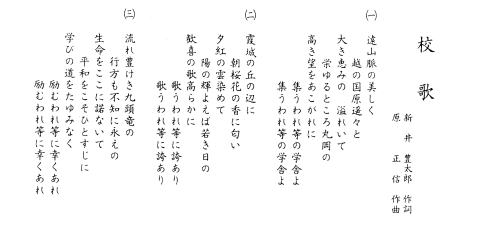 校歌
新井豊太郎 作詞
原正信 作曲
㈠
遠山脈の美しく
越の国原遥々と
大き恵みの 溢れいて
栄ゆるところ丸岡の
高き望をあこがれに
集うわれ等の学舎よ
集うわれ等の学舎よ
㈡
霞城の丘の辺に
朝桜花の香に匂い
夕紅の雲染めて
陽の輝よえば若き日の
歓喜の歌高らかに
歌うわれ等に誇あり
歌うわれ等に誇あり
㈢
流れ豊けき九頭竜の
行方も不知に永えの
生命をここに諾ないて
平和をこそひとすじに
学びの道をたゆみなく
励むわれ等に幸くあれ
励むわれ等に幸くあれ